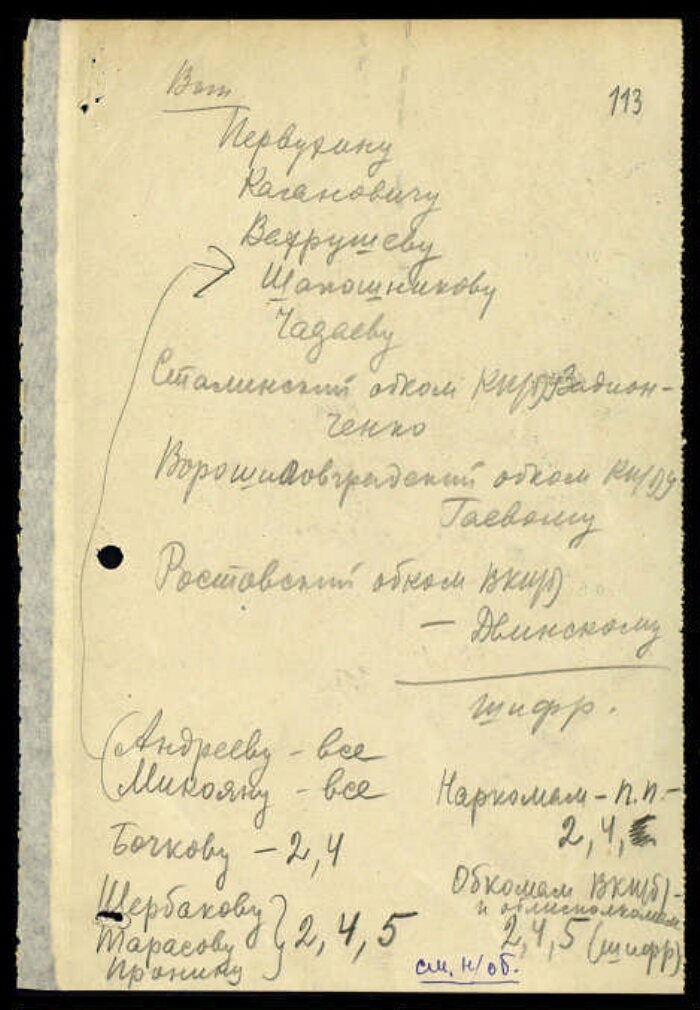 113
Вот
Первухину
Кагановичу
Вахрушеву
Шапошникову
Чадаеву
Сталинский обком КП(б)У Задион-
ченко
Ворошиловградский обком КП(б)У
Гаевому
Ростовский обком ВКП(б)
— Двинскому
шифр.
Андрееву - все
Микояну - все
Бочкову - 2,4
Щербакову
Тарасову
Пронину
2, 4, 5
Наркомам - п.п.-
2, 4,
Обкомам ВКП(б)-
и облисполкомам
2,4,5 (шифр)
см. н/об.